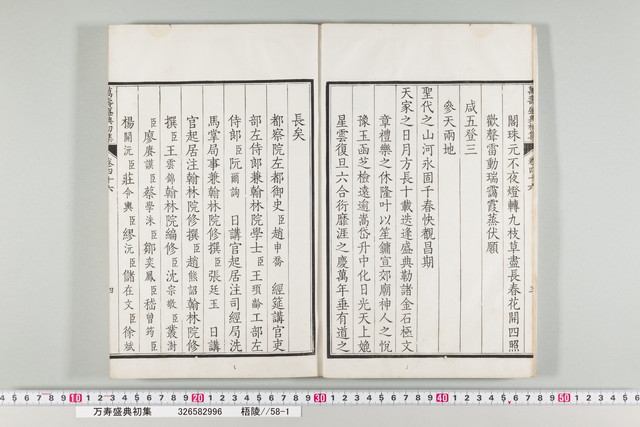 萬壽盛典初集 卷四十六
閣珠元不夜燈轉九枝草盡長春花開四照
歡聲雷動瑞靄霞蒸伏願
咸五登三
參天兩地
聖代之山河永固千春快覩昌期
天家之日月方長十載迭逢盛典勒諸金石極文
章禮樂之休隆叶以笙鏞宣郊廟神人之悅
豫玉函芝檢遠逾嵩岱升中化日光天上媲
星雲復旦六合衍靡涯之慶萬年垂有道之
長矣
都察院左都御史臣趙申喬 經筵講官吏
部左侍郎兼翰林院學士臣王頊齡工部左
侍郎臣阮爾詢 日講官起居注司經局洗
馬掌局事兼翰林院修撰臣張廷玉 日講
官起居注翰林院修撰臣趙熊詔翰林院修
撰臣王雲錦翰林院編修臣沈宗敬臣叢澍
臣廖賡謨臣蔡學洙臣鄒奕鳳臣嵇曾筠臣
楊開沅臣莊令輿臣繆沅臣儲在文臣徐斌
萬壽盛典初集 卷四十六 四
10 20 30 40 50
万寿盛典初集 326582996 梧陵//58-1